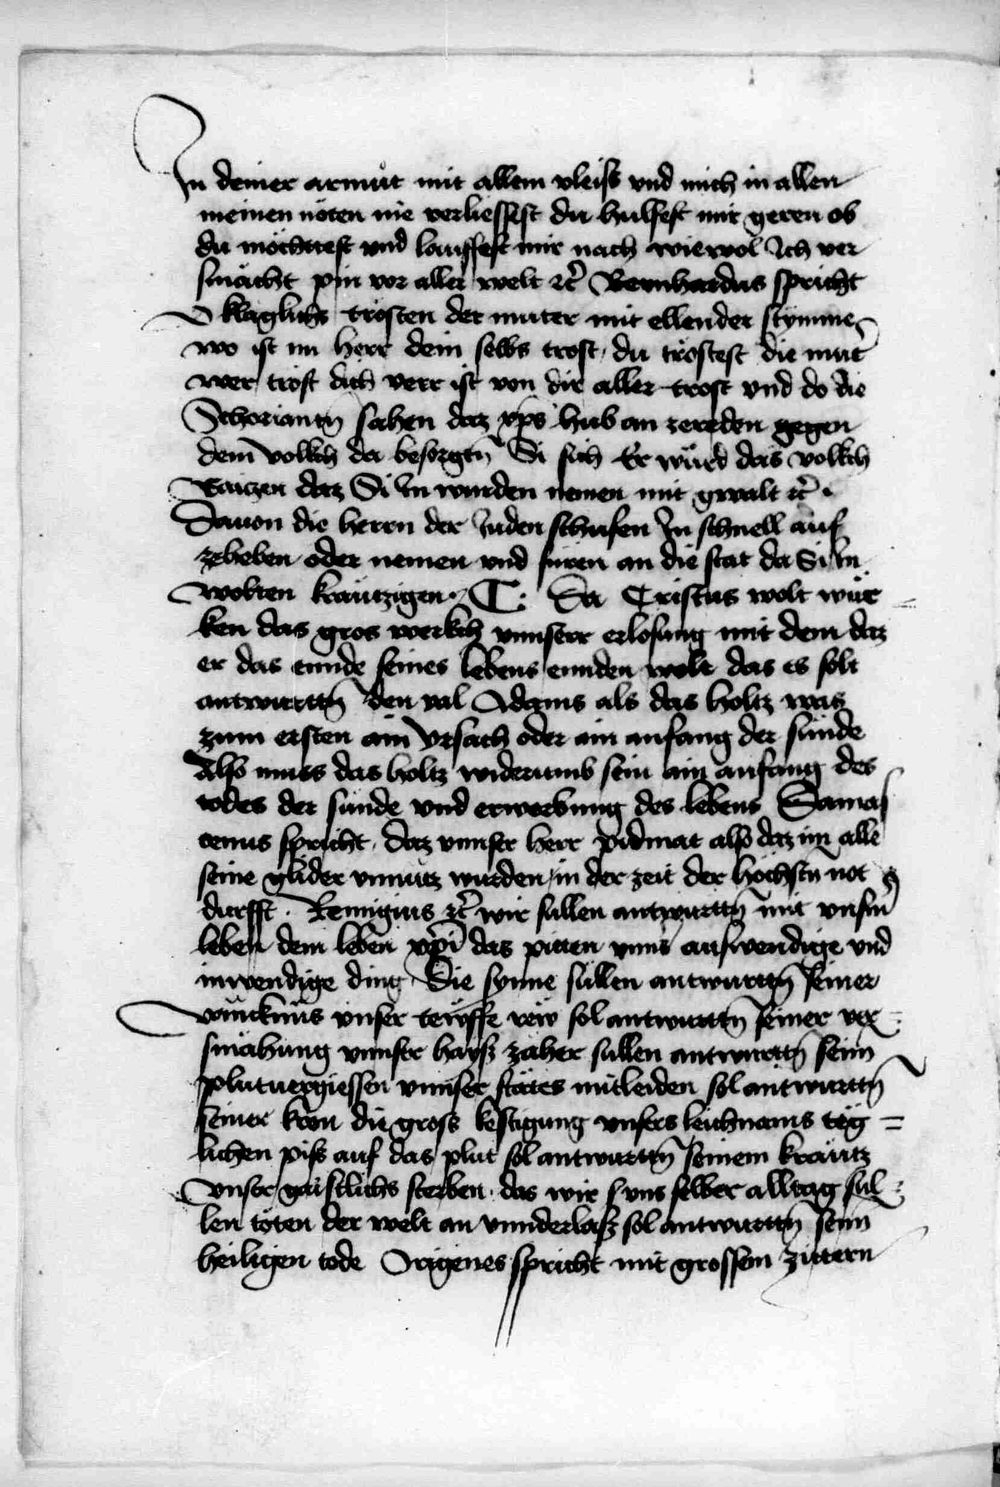 In deiner armůt mit allem vleiss vnd mich in allen
meinen nöten nie verliessest du hulfest mir geren ob
du möchttest vnd lauffest mir nach wiewol Ich ver
smächt pin vor aller welt ꝛc̄ Bernhardus spricht
O kläglichs trösten der muter mit ellender stymme
wo ist nu herr dein selbs trost du tröstest die mut̄
wer tröst dich verr ist von dir aller trost vnd do die
sahen daz xp̄s hub an zereden gegen
dem volkch da besorgtn̄ Si sich Er würd das volkch
Raitzen daz Si In wurden nemen mit gwalt ꝛc̄
Dauon die herrn der Juden schufen In schnell auf
zeheben oder nemen vnd füren an die stat da Si In
wolten kräutzigen C: Da Cristus wolt wür
ken das gros werkch vnnserr erlosung mit dem daz
er das ennde seines lebens ennden wolt das es solt
antwurttn̄ den val Adams als das holtz was
zum ersten ain vrsach oder ain anfang der sünde
also muss das holtz widerumb sein ain anfang des
todes der sünde vnd erwerbung des lebens Damas
cenus spricht daz vnnser herr also daz im alle
seine glider vnnütz wurden in der zeit der höchstn̄ not
durfft Remigius ꝛc̄ wir sullen antwurttn̄ mit vnsm̄
leben dem leben xp̄i das pitten vnns auswendige vnd
inwendige ding Die synne süllen antwurttn̄ seiner
vänncknüs vnser rew sol antwurttn̄ seiner ver
smähung vnnser hayss zäher sullen antwurttn̄ seim
plutuergiessen vnnser stätes mitleiden sol antwurttn̄
seiner kron die gross kestigung vnsers leichnams täg
lichen piss auf das plut sol antwurttn̄ seinem kräutz
Vnser gaistlichs sterben das wir vns selber alltag sul
len töten der welt an vnnderlass sol antwurttn̄ seim
heiligen tode Origenes spricht mit grossem zittern